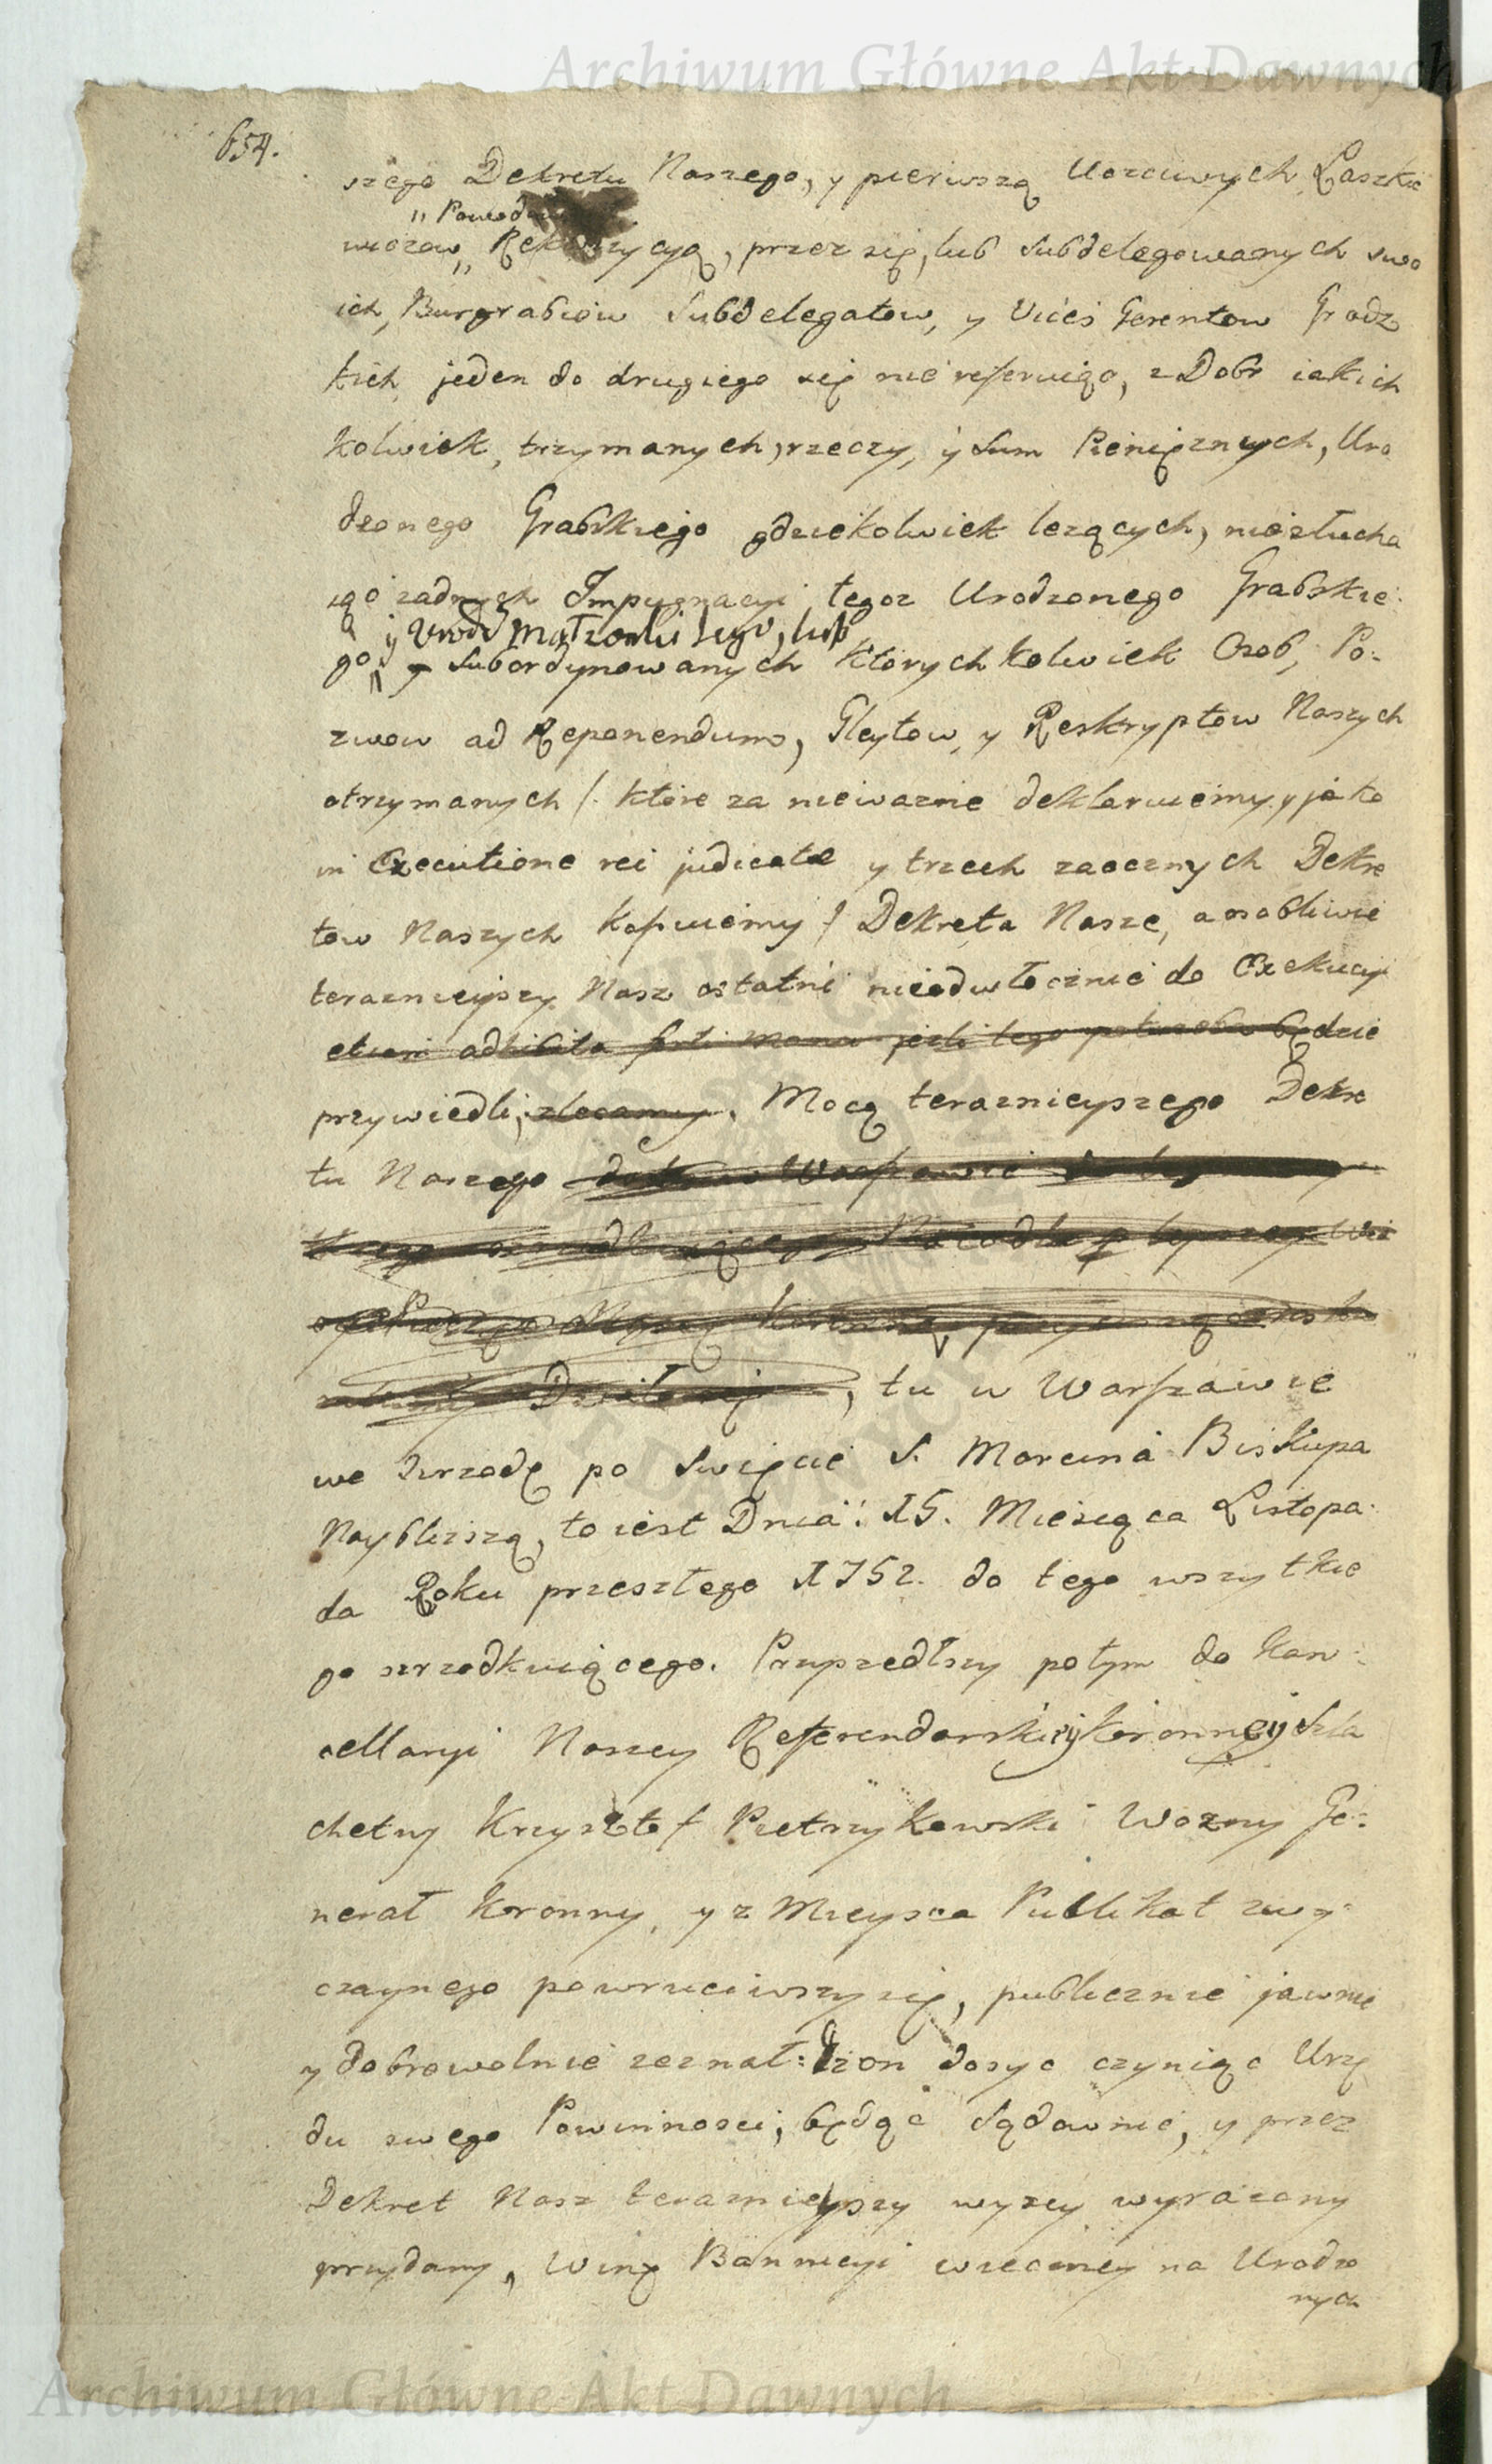 Archiwum Główne Akt Dawnych
654.
szego Dekretu Naszego, y pierwszą Uczciwych Laszkie
" Powodow
wiczow,, Rekwizycyą, przez się, lub Subdelegowanych swo
ich, Burgrabiow Subdelegatow, y Vices Gerentow Grodz
kich, jeden do drugiego się nie referuiąc, z Dobr iakich
kolwiek, trzymanych, rzeczy, y Sum Pieniężnych, Uro
dzonego Grabskiego gdziekolwiek leżących, niesłucha
iąc żadnych Impugnacyi tegoz Urodzonego Grabskie:
y Urodz Małżonki Jego, lub
go,, y Subordynowanych ktorychkolwiek Osob, Po:
zwow ad Reponendum, Gleytow, y Reskryptow Naszych
otrzymanych /: ktore za nieważne deklaruiemy, y jako
in Executione rei judicatæ y trzech zaocznych Dekre
tow Naszych kassuiemy / Dekreta Nasze, a osobliwie
teraznieyszy Nasz ostatni nieodwłocznie do Exekucyi
etiam adhibita forti manu jeżli tego potrzeba będzie
przywiedli, zlecamy. Mocą teraznieyszego Dekre
tu Naszego Warszawie
, tu w Warszawie
we Srzodę po Swięcie S. Marcina Biskupa
Nayblizszą, to iest Dnia: 15. Miesiąca Listopa:
da Roku przeszłego 1752. do tego wszytkie
go szrzodkuiącego. Przyszedłszy potym do Kan:
cellaryi Naszey Referendarskiey Koronney Szla
chetny Krysztof Pietrzykowski Wozny Ge:
nerał Koronny, y z Mieysca Publikat zwy:
czaynego powruciwszy się, publicznie jawnie
y dobrowolnie zeznał: Iz on dosyc czyniąc Urzę
du swego Powinnosci, będąc Sądownie, y przez
Dekret Nasz teraznieyszy wyzey wyrazony
przydany, Winę Bannicyi wieczney na Urodzo
nych
Archiwum Główne Akt Dawnych